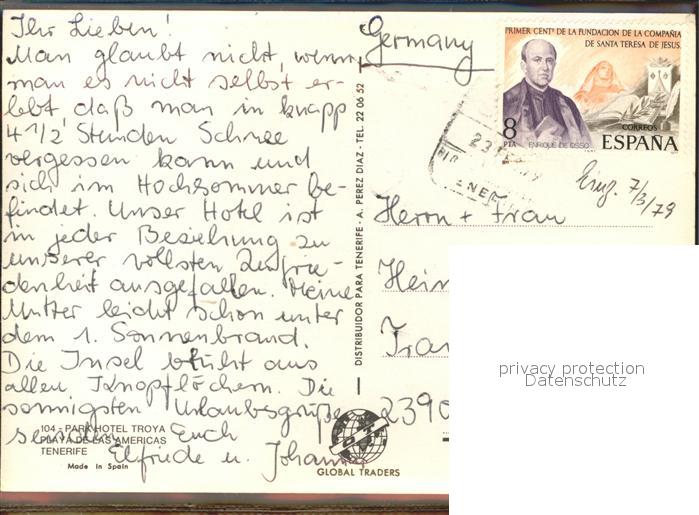 Ihr Lieben!
Man glaubt nicht, wenn
man es nicht selbst er-
lebt, daß man in knapp
4 1/2 Stunden Schnee
vergessen kann und
sich im Hochsommer be-
findet. Unser Hotel ist
in jeder Beziehung zu
unserer vollsten Zufrie-
denheit ausgefallen. Meine
Mutter leidet schon unter
dem 1. Sonnenbrand.
Die Insel blüht aus
allen Knopflöchern. Die
sonnigsten Urlaubsgrüße
senden Euch
Elfriede u. Johanna
104 - PARK HOTEL TROYA
PLAYA DE LAS AMERICAS
TENERIFE
Made in Spain
DISTRIBUIDOR PARA TENERIFE - A. PEREZ DIAZ - TEL. 22 06 52
GLOBAL TRADERS
Germany
PRIMER CENTº DE LA FUNDACION DE LA COMPAÑIA
DE SANTA TERESA DE JESUS.
8
PTA
ENRIQUE DE OSSO
CORREOS
ESPAÑA
Eing. 7/3/79
Herrn + Frau
Hein
2390
privacy protection
Datenschutz